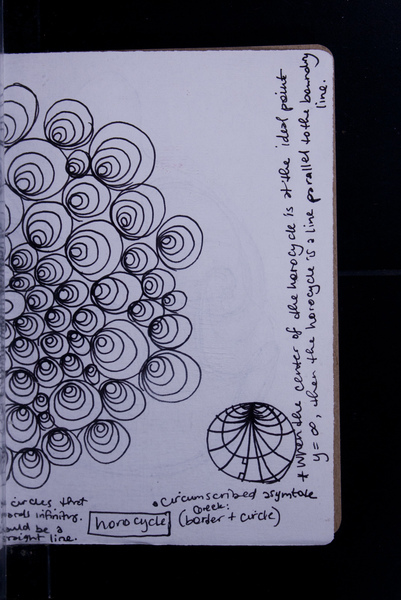 + when the center of the horocycle is at the ideal point
y = ∞, then the horocycle is a line parallel to the boundry
line.
circles that
infinity.
be a
line.
horocycle
• circumscribed asymtote
Greek:
(border + circle)